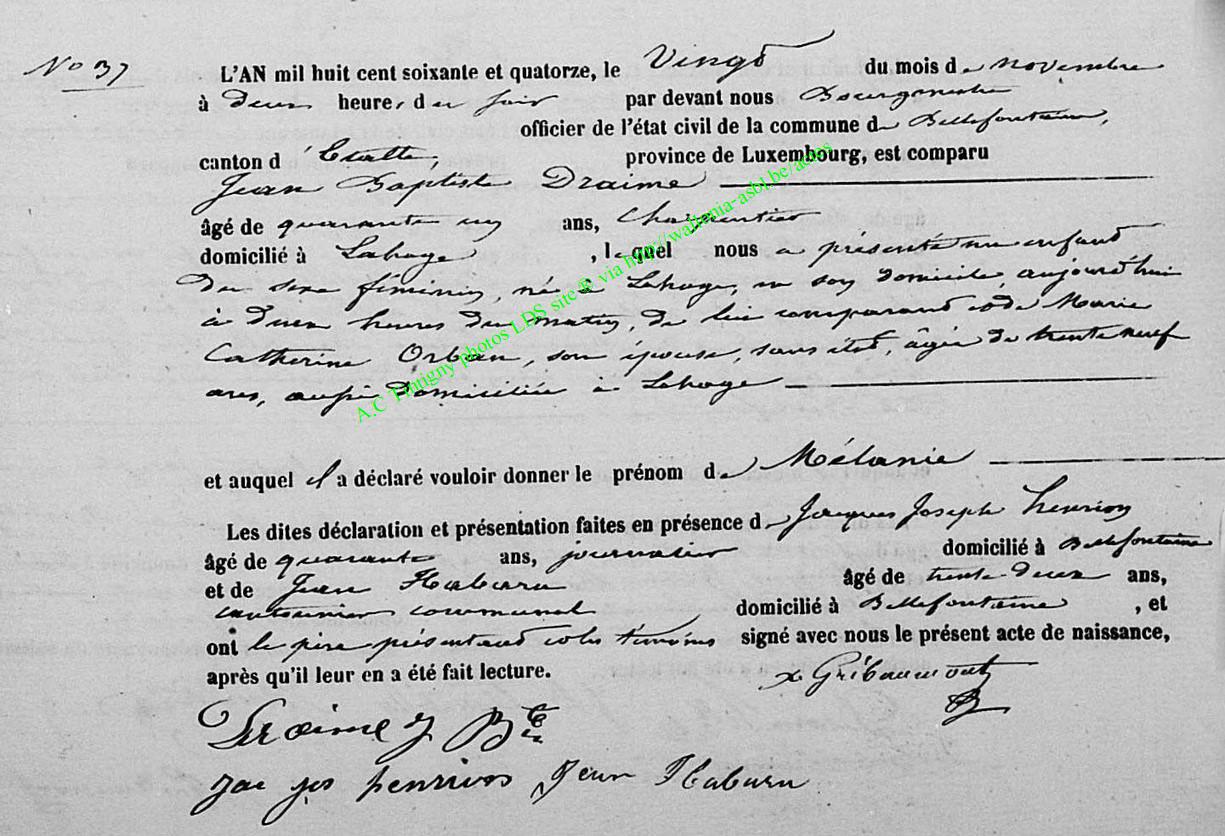 No 37
L'AN mil huit cent soixante et quatorze, le Vingt du mois de novembre
à deux heures du soir par devant nous Bourgmestre
officier de l'état civil de la commune de Bellefontaine,
canton d'Etalle, province de Luxembourg, est comparu
Jean Baptiste Draime
âgé de quarante un ans, Charpentier
domicilié à Lahage, lequel nous a présenté un enfant
du sexe féminin, né à Lahage, en son domicile, aujourd'hui
à deux heures du matin, de lui comparant et de Marie
Catherine Orban, son épouse, sans état, âgée de trente neuf
ans, aussi domiciliée à Lahage
et auquel il a déclaré vouloir donner le prénom de Mélanie
Les dites déclaration et présentation faites en présence de Jacques Joseph Henrion
âgé de quarante ans, journalier domicilié à Bellefontaine
et de Jean Habaru âgé de trente deux ans,
cantonnier communal domicilié à Bellefontaine, et
ont le père présentant et les témoins signé avec nous le présent acte de naissance,
après qu'il leur en a été fait lecture.
Gribaumont
Draime J Bte
Jac Jos henrion Jean Habaru
A.C Tintigny photos LDS site © via http//wallonia-asbl.be/actes